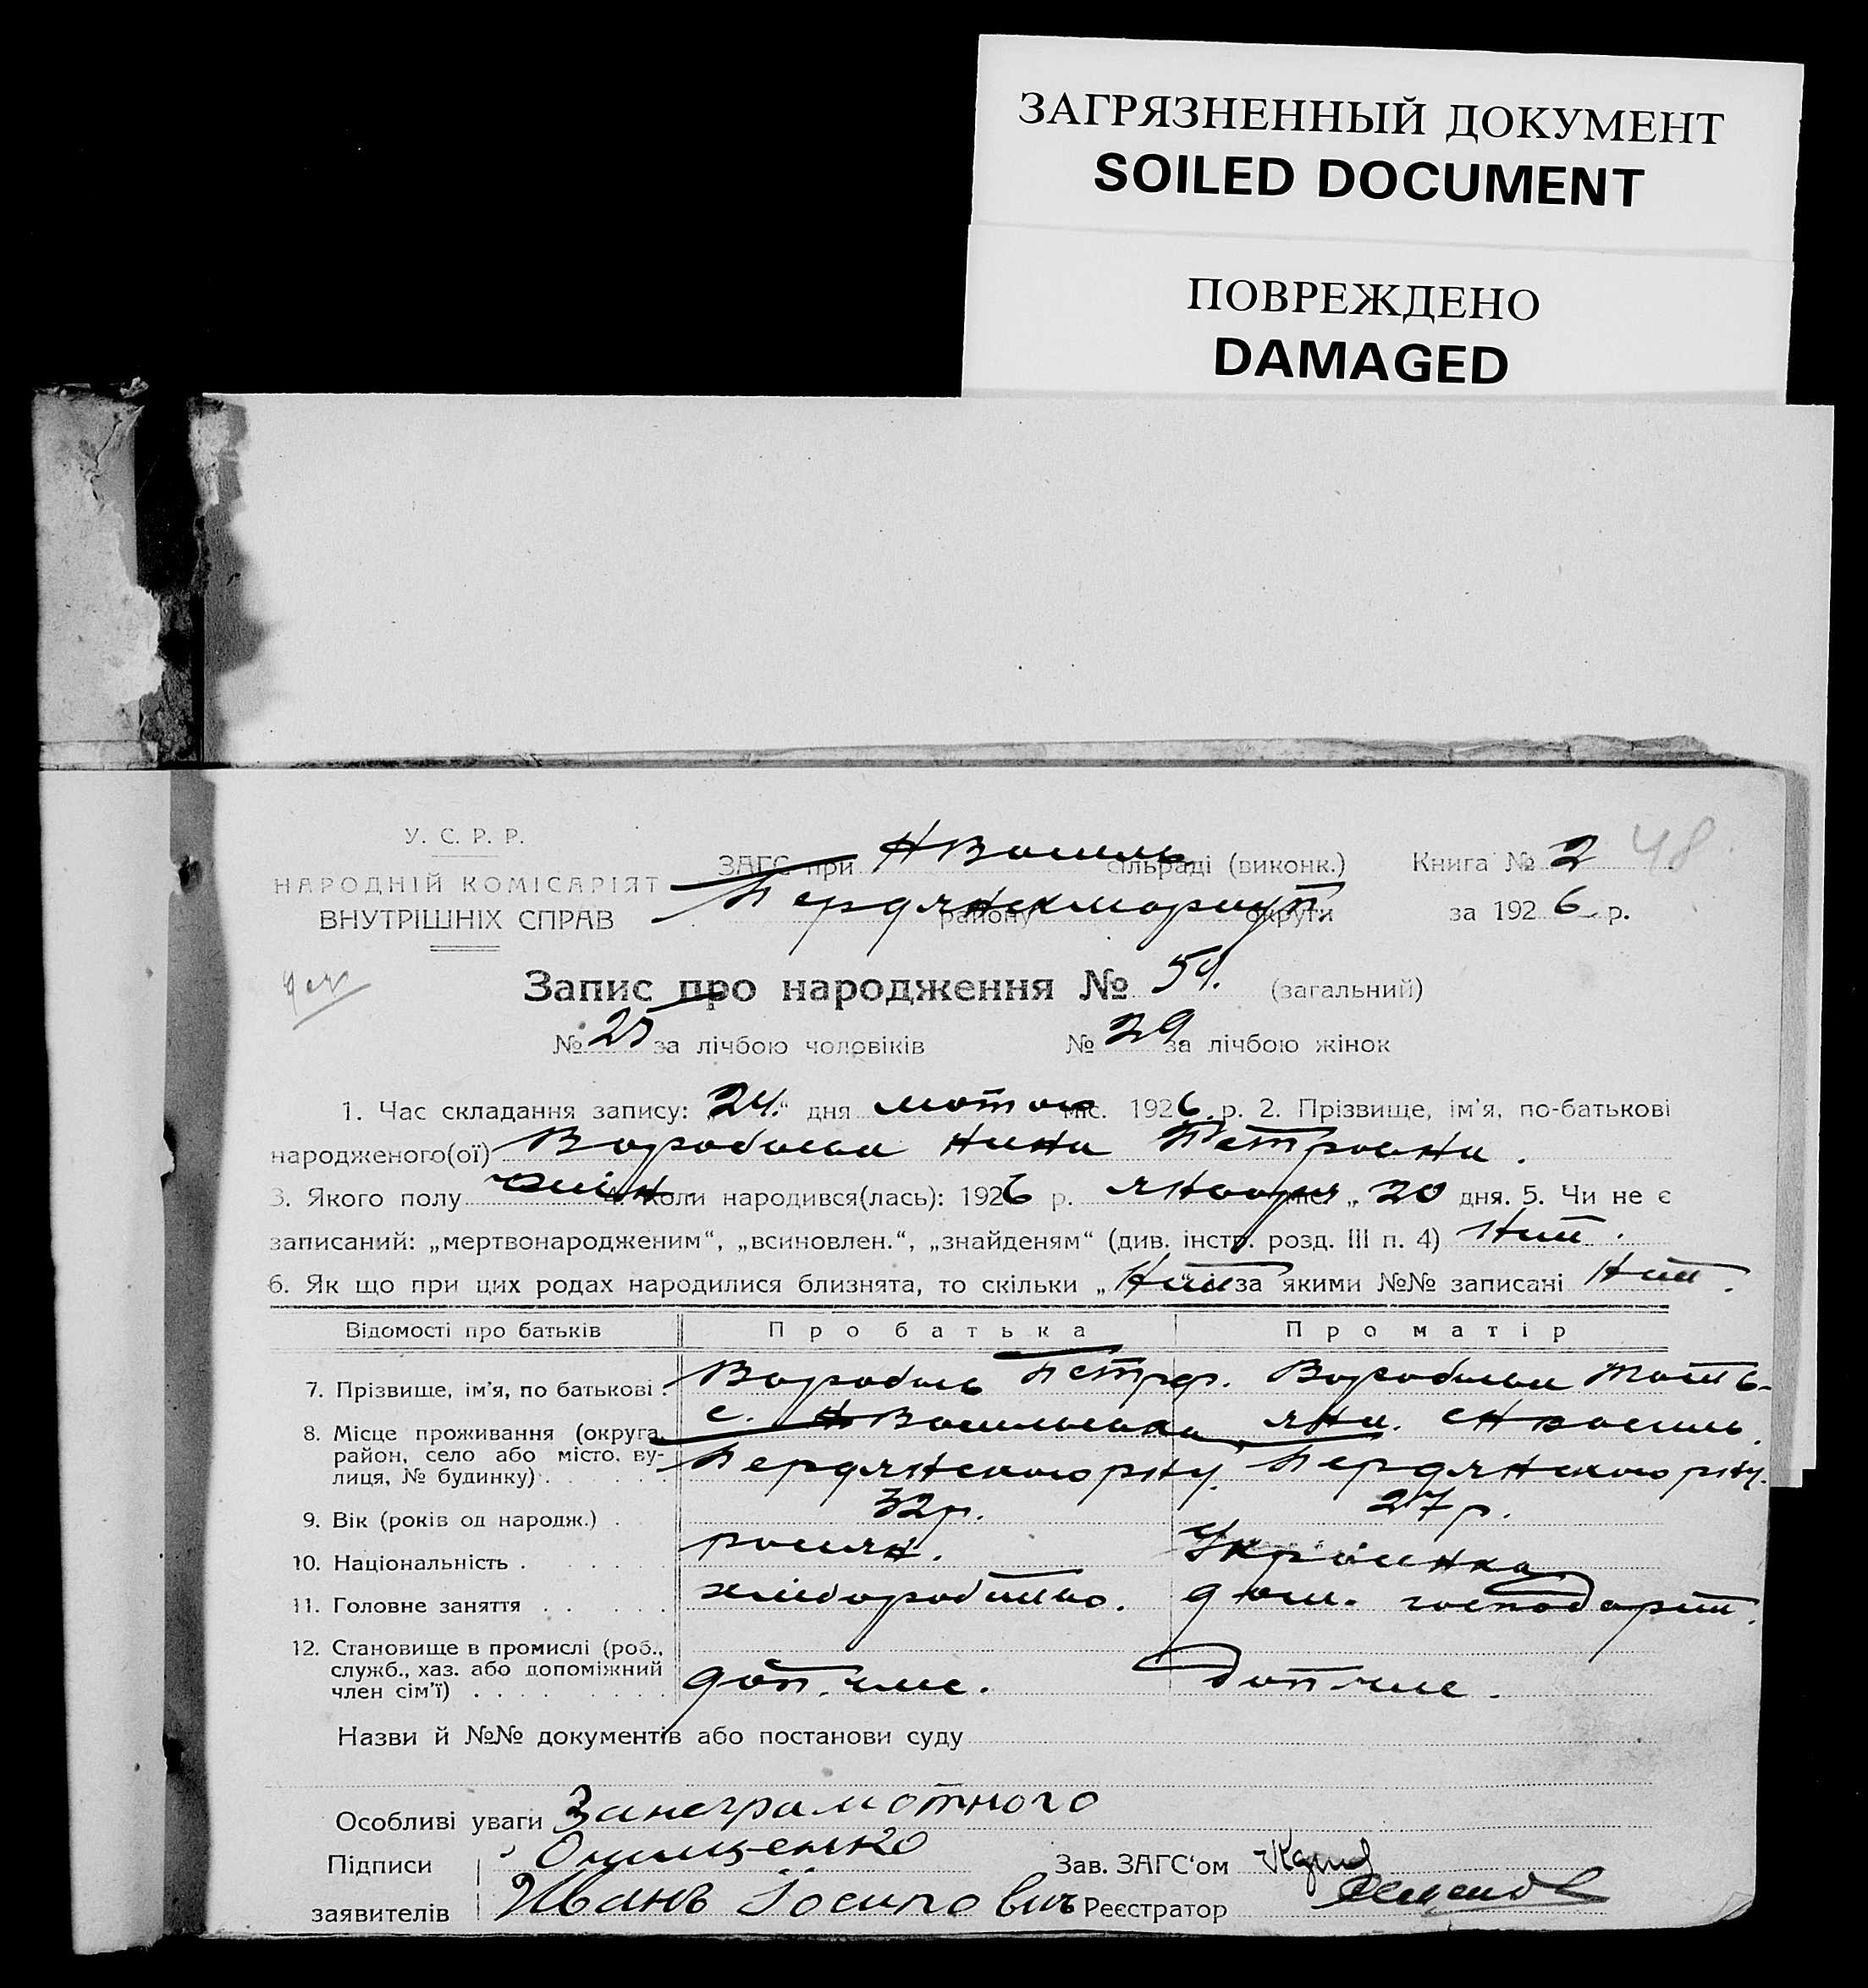 ЗАГРЯЗНЕННЫЙ ДОКУМЕНТ
SOILED DOCUMENT
ПОВРЕЖДЕНО
DAMAGED
У. С. Р. Р.
НАРОДНІЙ КОМІСАРІЯТ
ВНУТРІШНІХ СПРАВ
ЗАГС при НВасиль сільраді (виконк.) Книга № 2 48
Бердянск Маріуп. району округи за 1926 р.
Запис про народження № 54. (загальний)
№ 25 за лічбою чоловіків № 29 за лічбою жінок
1. Час складання запису: „24.“ дня лютого міс. 1926 р. 2. Прізвище, ім'я, по-батькові
народженого(ої) Воробьева Нина Петровна.
3. Якого полу жін. 4. Коли народився(лась): 1926 р. января міс. „20 дня. 5. Чи не є
записаний: „мертвонародженим“, „всиновлен.“, „знайденям“ (див. інстр. розд. III п. 4) Ниті.
6. Як що при цих родах народилися близнята, то скільки „ Ниті за якими №№ записані Ниті.
Відомості про батьків Про батька Про матір
7. Прізвище, ім'я, по батькові. Воробьев Петр Воробьева Тать-
8. Місце проживання (округа, с. НВасильевка яна. с НВасиль.
район, село або місто, ву- Бердянского р-ну. Бердянского р-ну.
лиця, № будинку)
9. Вік (років од народж.) 32 р. 27 р.
10. Національність росиян. Українка
11. Головне заняття хліборобство. дом. господарст.
12. Становище в промислі (роб.,
служб., хаз. або допоміжний
член сім'ї) доп. чле. доп чле.
Назви й №№ документів або постанови суду
Особливі уваги Занеграмотного
Підписи Онищенко Зав. ЗАГС'ом
заявителів Иванъ Іосиповичъ Реєстратор